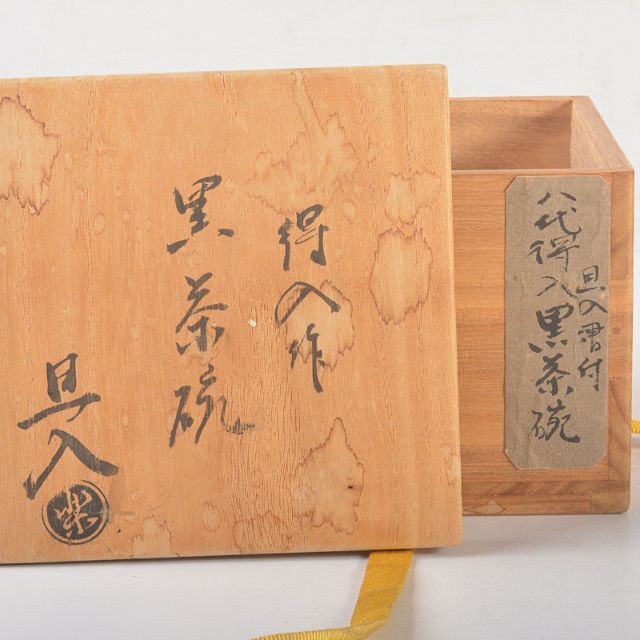 得入作
黒茶碗
旦入
樂
八代得入黒茶碗
旦入書付